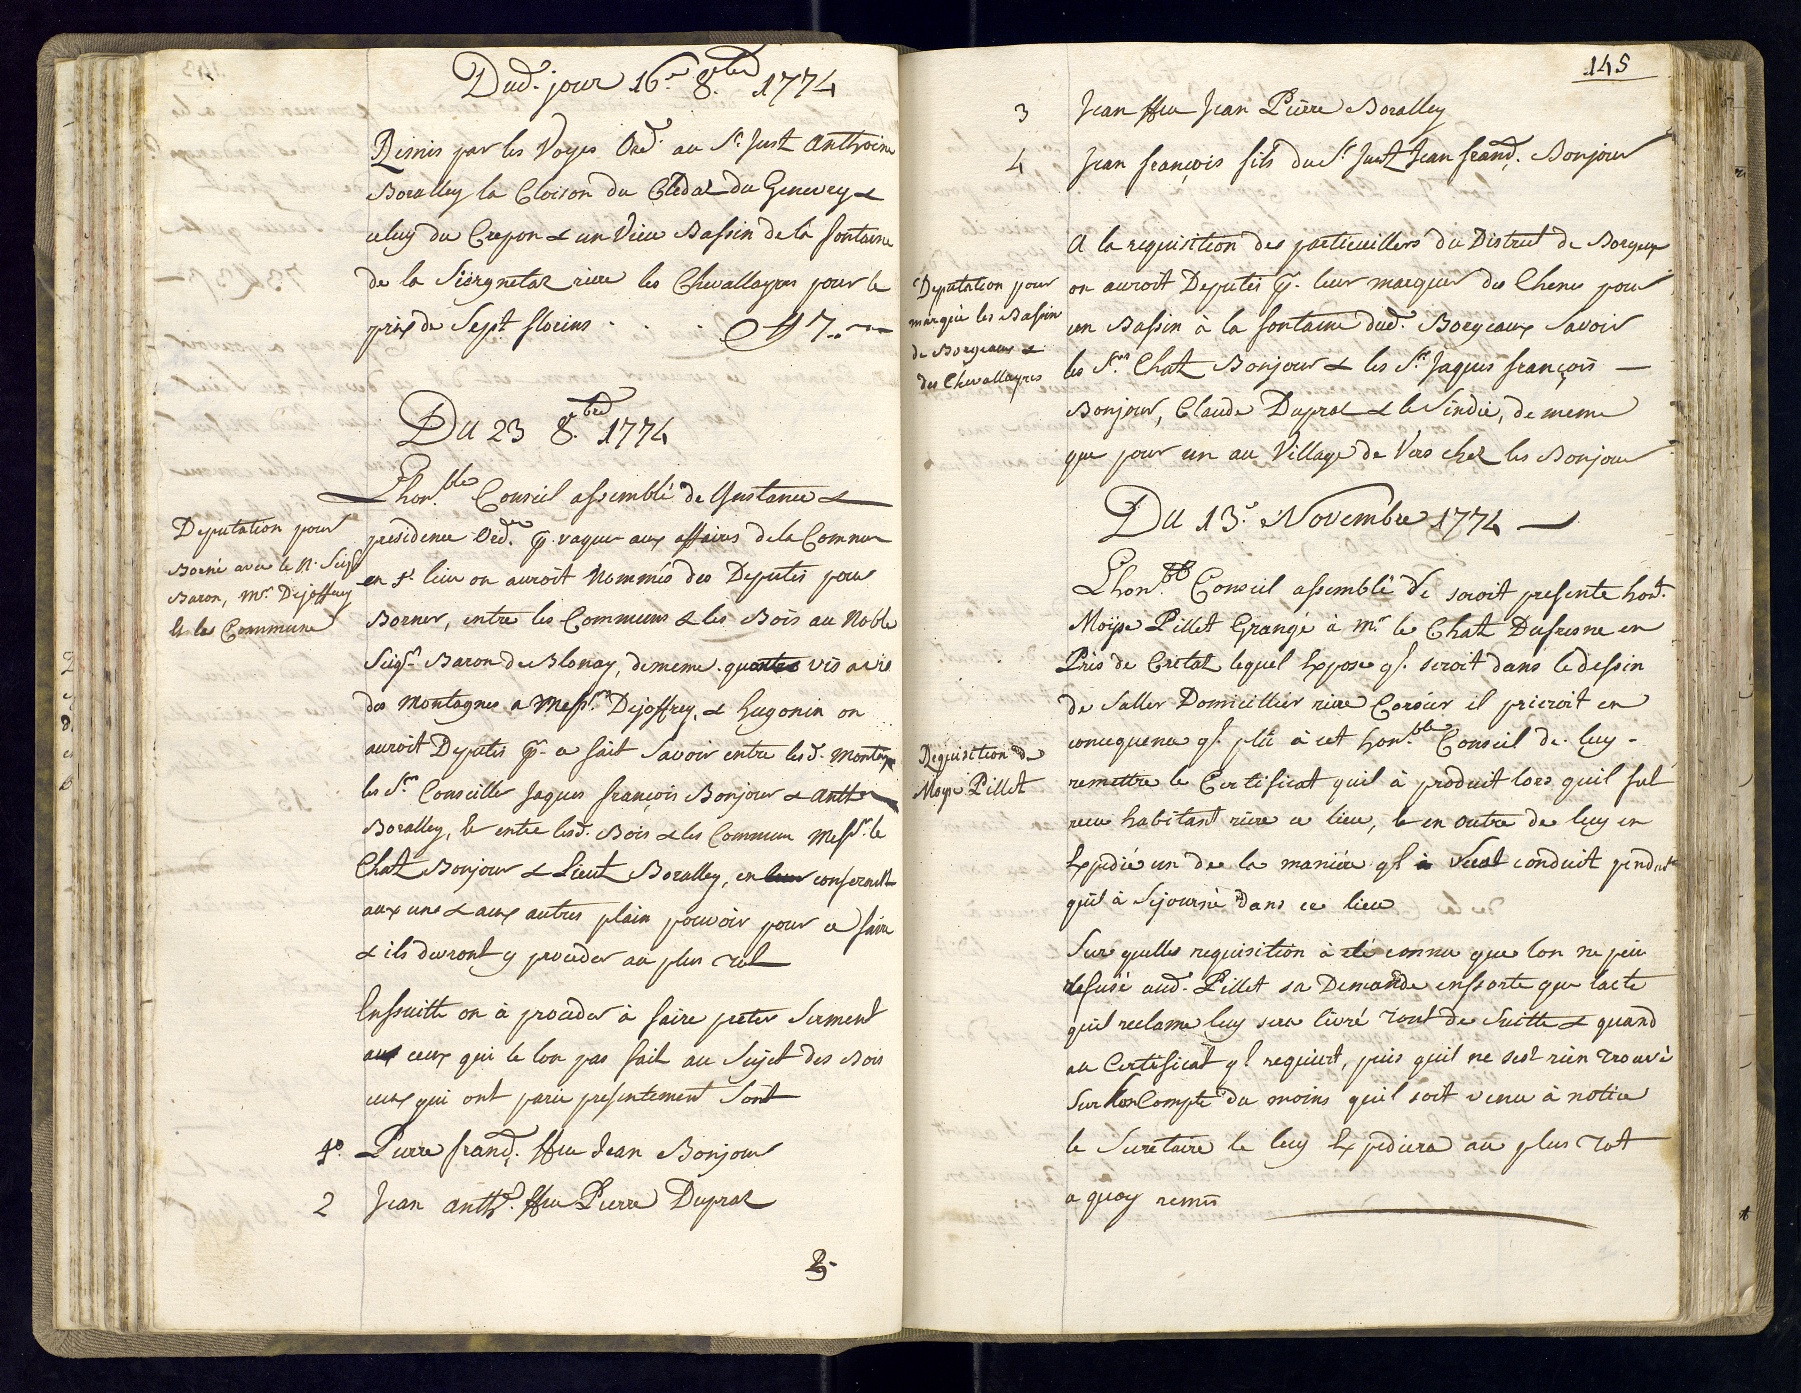 Dud. jour 16.e 8.bre 1774
Remis par les Voyes Ord. au Sr. Just Anthoine
Boralley la Cloison du Cledar du Genevrey &
celuy du Crepon & un Vieu Bassin de la fontaine
de la Siergnetaz rière les Chevalleyres pour le
prix de Sept florins . . . ff 7.. --
Du 23 8.bre 1774
Lhon.ble Conseil assemblé de Gustance &
Deputation pour
Borné avec le N. Seigr
Baron, Mr. Dejoffrey
& la Commune
presidence Ord.re pr. vaquer aux affaires de la Commune
en 1.r lieu on auroit Nommés des Deputés pour
Borner, entre les Communs & les Bois au Noble
Seigr. Baron de Blonay, de meme vis a vis
des Montagnes a Messrs. Dejoffrey, & hugonin on
auroit Deputés pr. ce fait Savoir entre lesd. Montag
les Srs. Conseiller Jaques françois Bonjour & Anth
Boralley, & entre lesd. Bois & les Commun Messrs. le
Chat. Bonjour & Lieut. Boralley, en conferant
aux uns & aux autres plain pouvoir pour ce faire
& ils devront y proceder au plus tot
Enssuitte on à proceder à faire preter Serment
aux ceux qui le lon pas fait au Sujet des Bois
ceux qui ont parû presentement Sont
1.o Pierre frand. ffeu Jean Bonjour
2 Jean Anth. ffeu Pierre Dupraz
3.
145
3 Jean ffeu Jean Pierre Boralley
4 Jean françois fils du Sr. Just Jean frand. Bonjour
Deputation pour
marqué les Bassin
de Borgeaux &
des Chevalleyres
A la requisition des particuillers du District de Borgeaux
on auroit Deputés pr. leur marquer des Chenes pour
un Bassin à la fontaine dud. Borgeaux Savoir
les Srs. Chat. Bonjour & les Srs. Jaques françois
Bonjour, Claude Dupraz & le Sindic, de meme
que pour un au Village de Vers chez les Bonjour
Du 13.e Novembre 1774
Lhon.ble Conseil assemblé Se seroit presente hont.
Moÿse Pillet Grangé à Mr. le Chat. Dufresne en
Prés de Cretaz lequel Expose ql. seroit dans le dessin
de Saller Domicillier rière Corsier il prieroit en
concequence ql. plû à cet hon.ble Conseil de luy
Requisition de
Moyse Pillet
remettre le Certificat quil à produit lors quil fut
recu habitant rière ce lieu, & en outre de luy en
Expedié un de la manière ql. Sest conduit pendant
quil à Sejourné dans ce lieu
Sur quelle requisition à eté connu que lon ne peu
refusé aud. Pillet sa Demande enssorte que lacte
quil reclame luy sera livré tout de Suitte & quand
au Certificat ql. requiert, puis quil ne sest rien trouvé
Sur son Compte du moins quil soit venu à notice
le Secretaire le luy Expediera au plus tot
a quoy remis